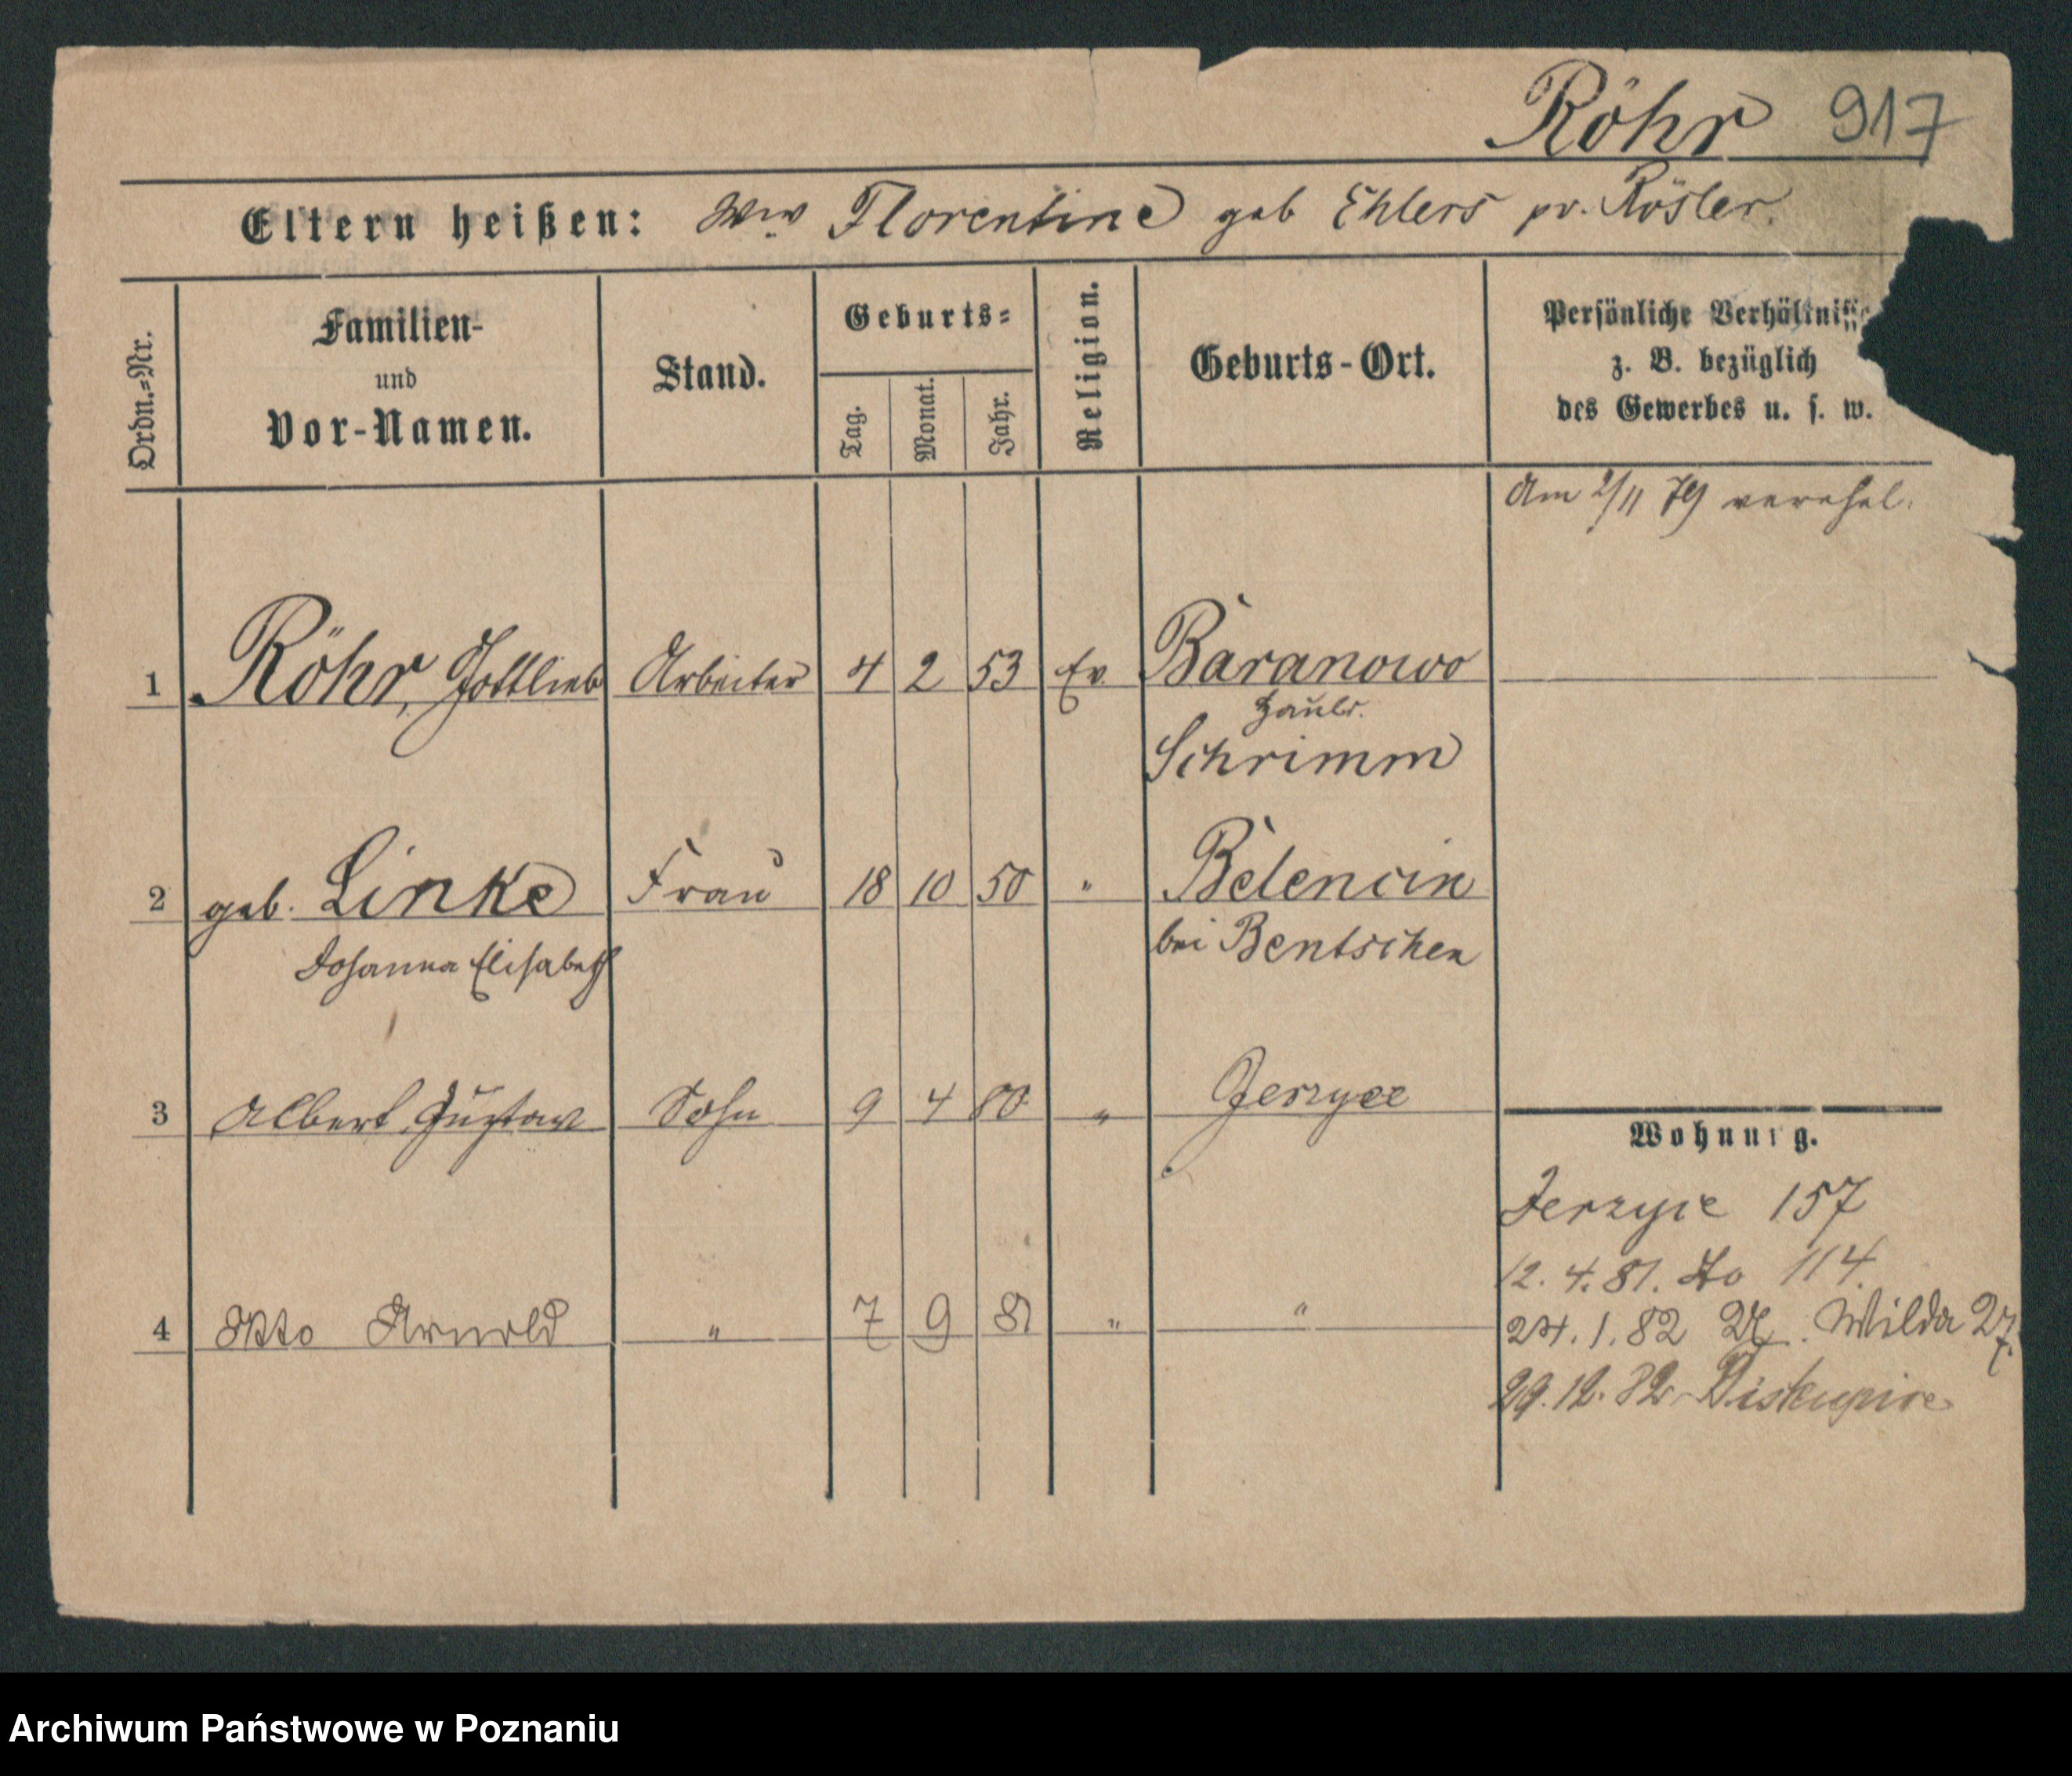 Röhr 917
Eltern heißen: Ww Florentine geb Ehlers pr. Rösler.
Ordn.=Nr.
Familien-
und
Vor-Namen.
Stand.
Geburts=
Tag.
Monat.
Jahr.
Religion.
Geburts-Ort.
Persönliche Verhältniss
z. B. bezüglich
des Gewerbes u. s. w.
Am 2/11 79 verehel.
1 Röhr, Gottlieb Arbeiter 4 2 53 Ev. Baranowo
Schrimm
2 geb. Linke Frau 18 10 50 " Belencin
Johanna Elisabeth bei Bentschen
3 Albert Gustav Sohn 9 4 80 " Jerzyce
Wohnung.
Jerzyce 157
12. 4. 81. do 114.
4 Otto Arnold " 7 9 81 " "
24. 1. 82 Wilda 27
29. 12. 82
Archiwum Państwowe w Poznaniu